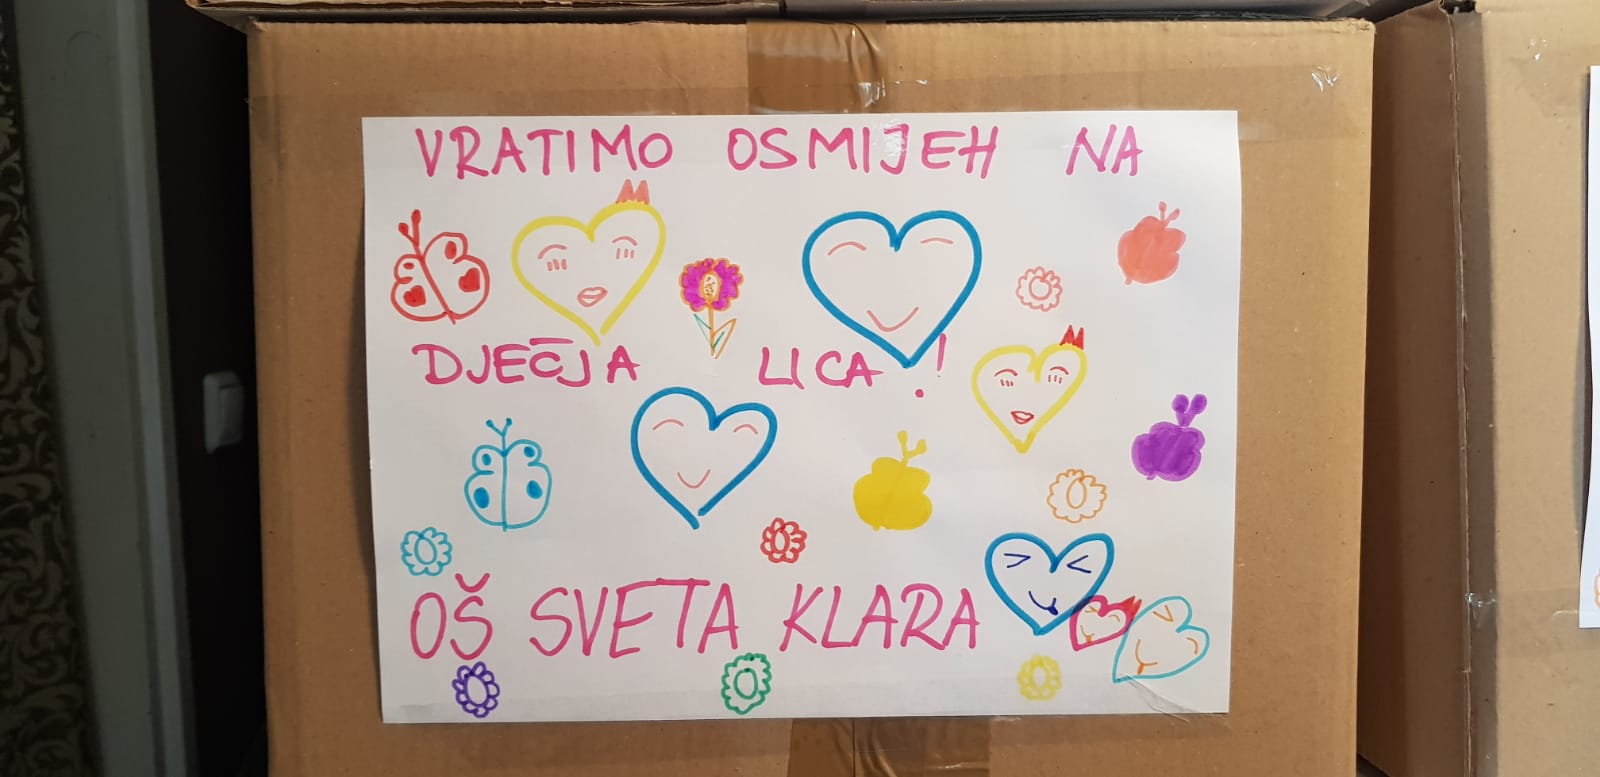 VRATIMO OSMIJEH NA
DJEČJA LICA!
OŠ SVETA KLARA